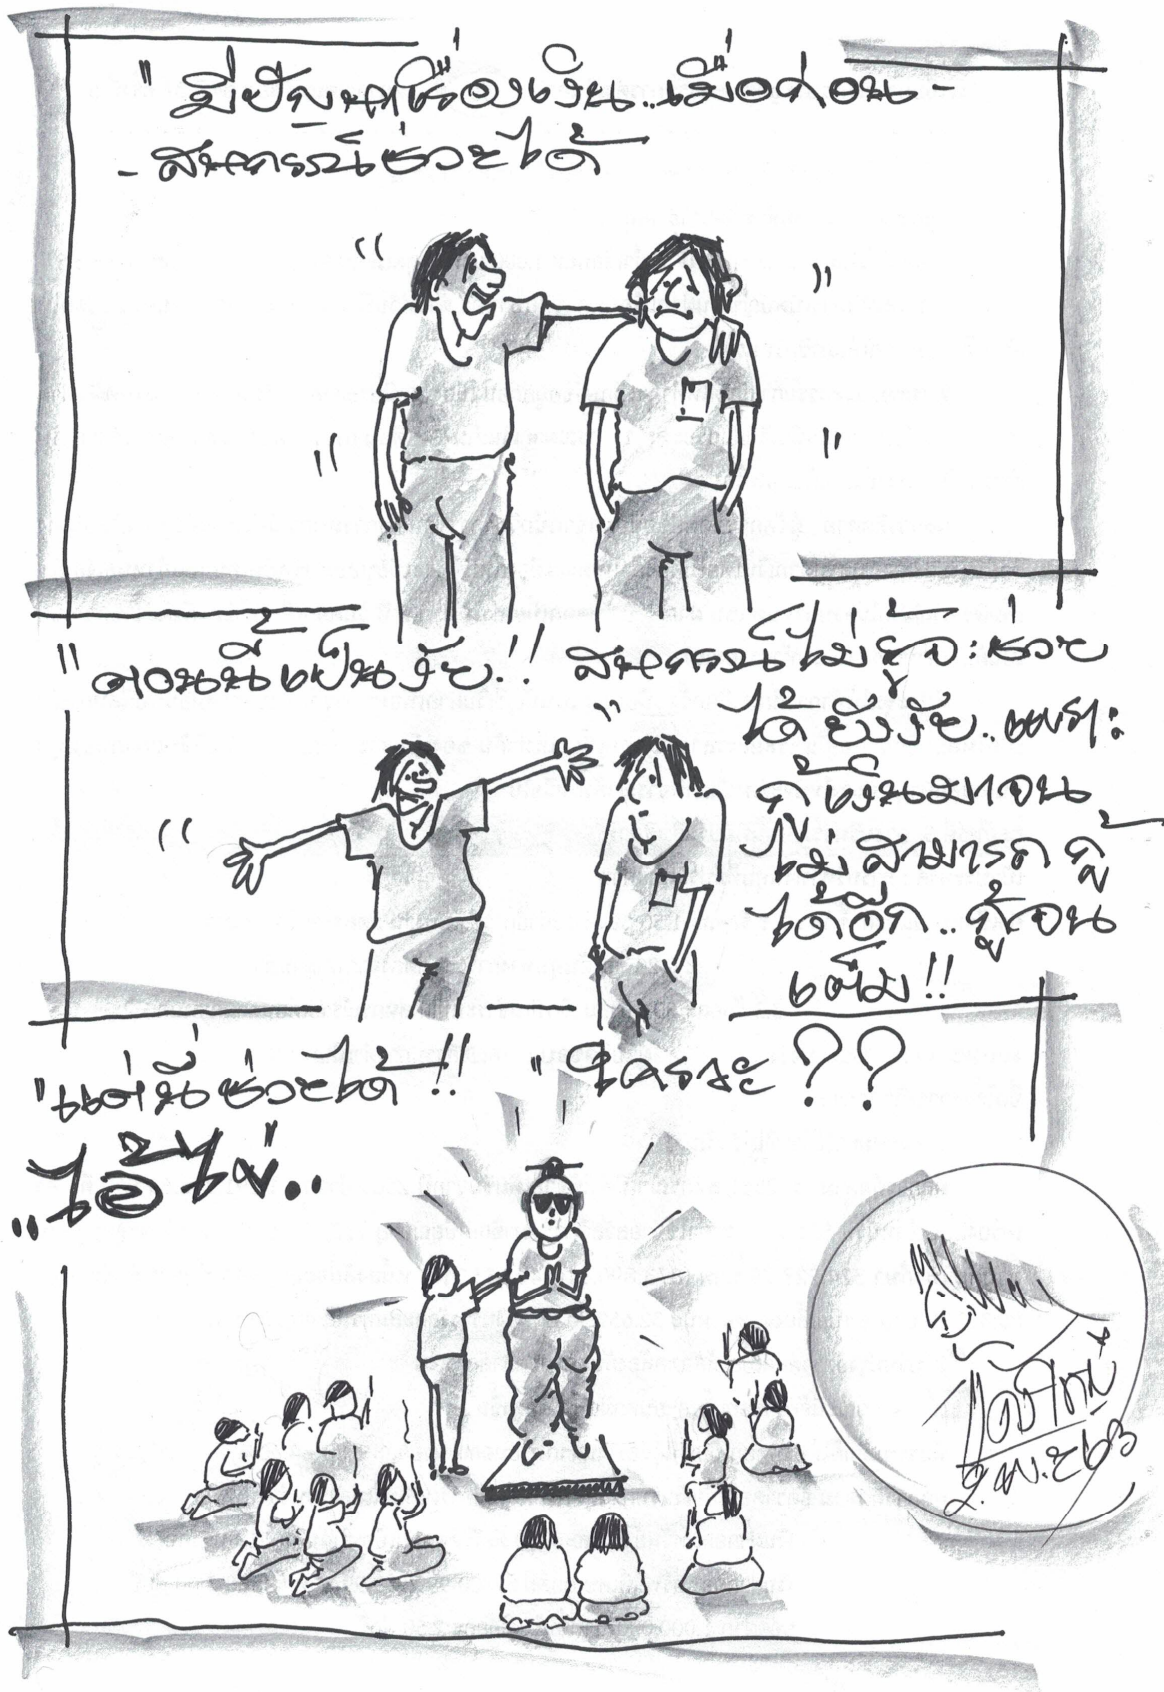 "มีปัญหาเรื่องเงิน..เมื่อก่อน-
-สหกรณ์ช่วยได้
"ตอนนี้เป็นงัย!! สหกรณ์ไม่รู้จะช่วย
ได้ยังงัย..เพราะ
กู้เงินมาจน
ไม่สามารถกู้
ได้อีก..กู้จน
เต็ม!!
"แต่นี่ช่วยได้!! "ใครวะ??
"ไอ้ไข่..